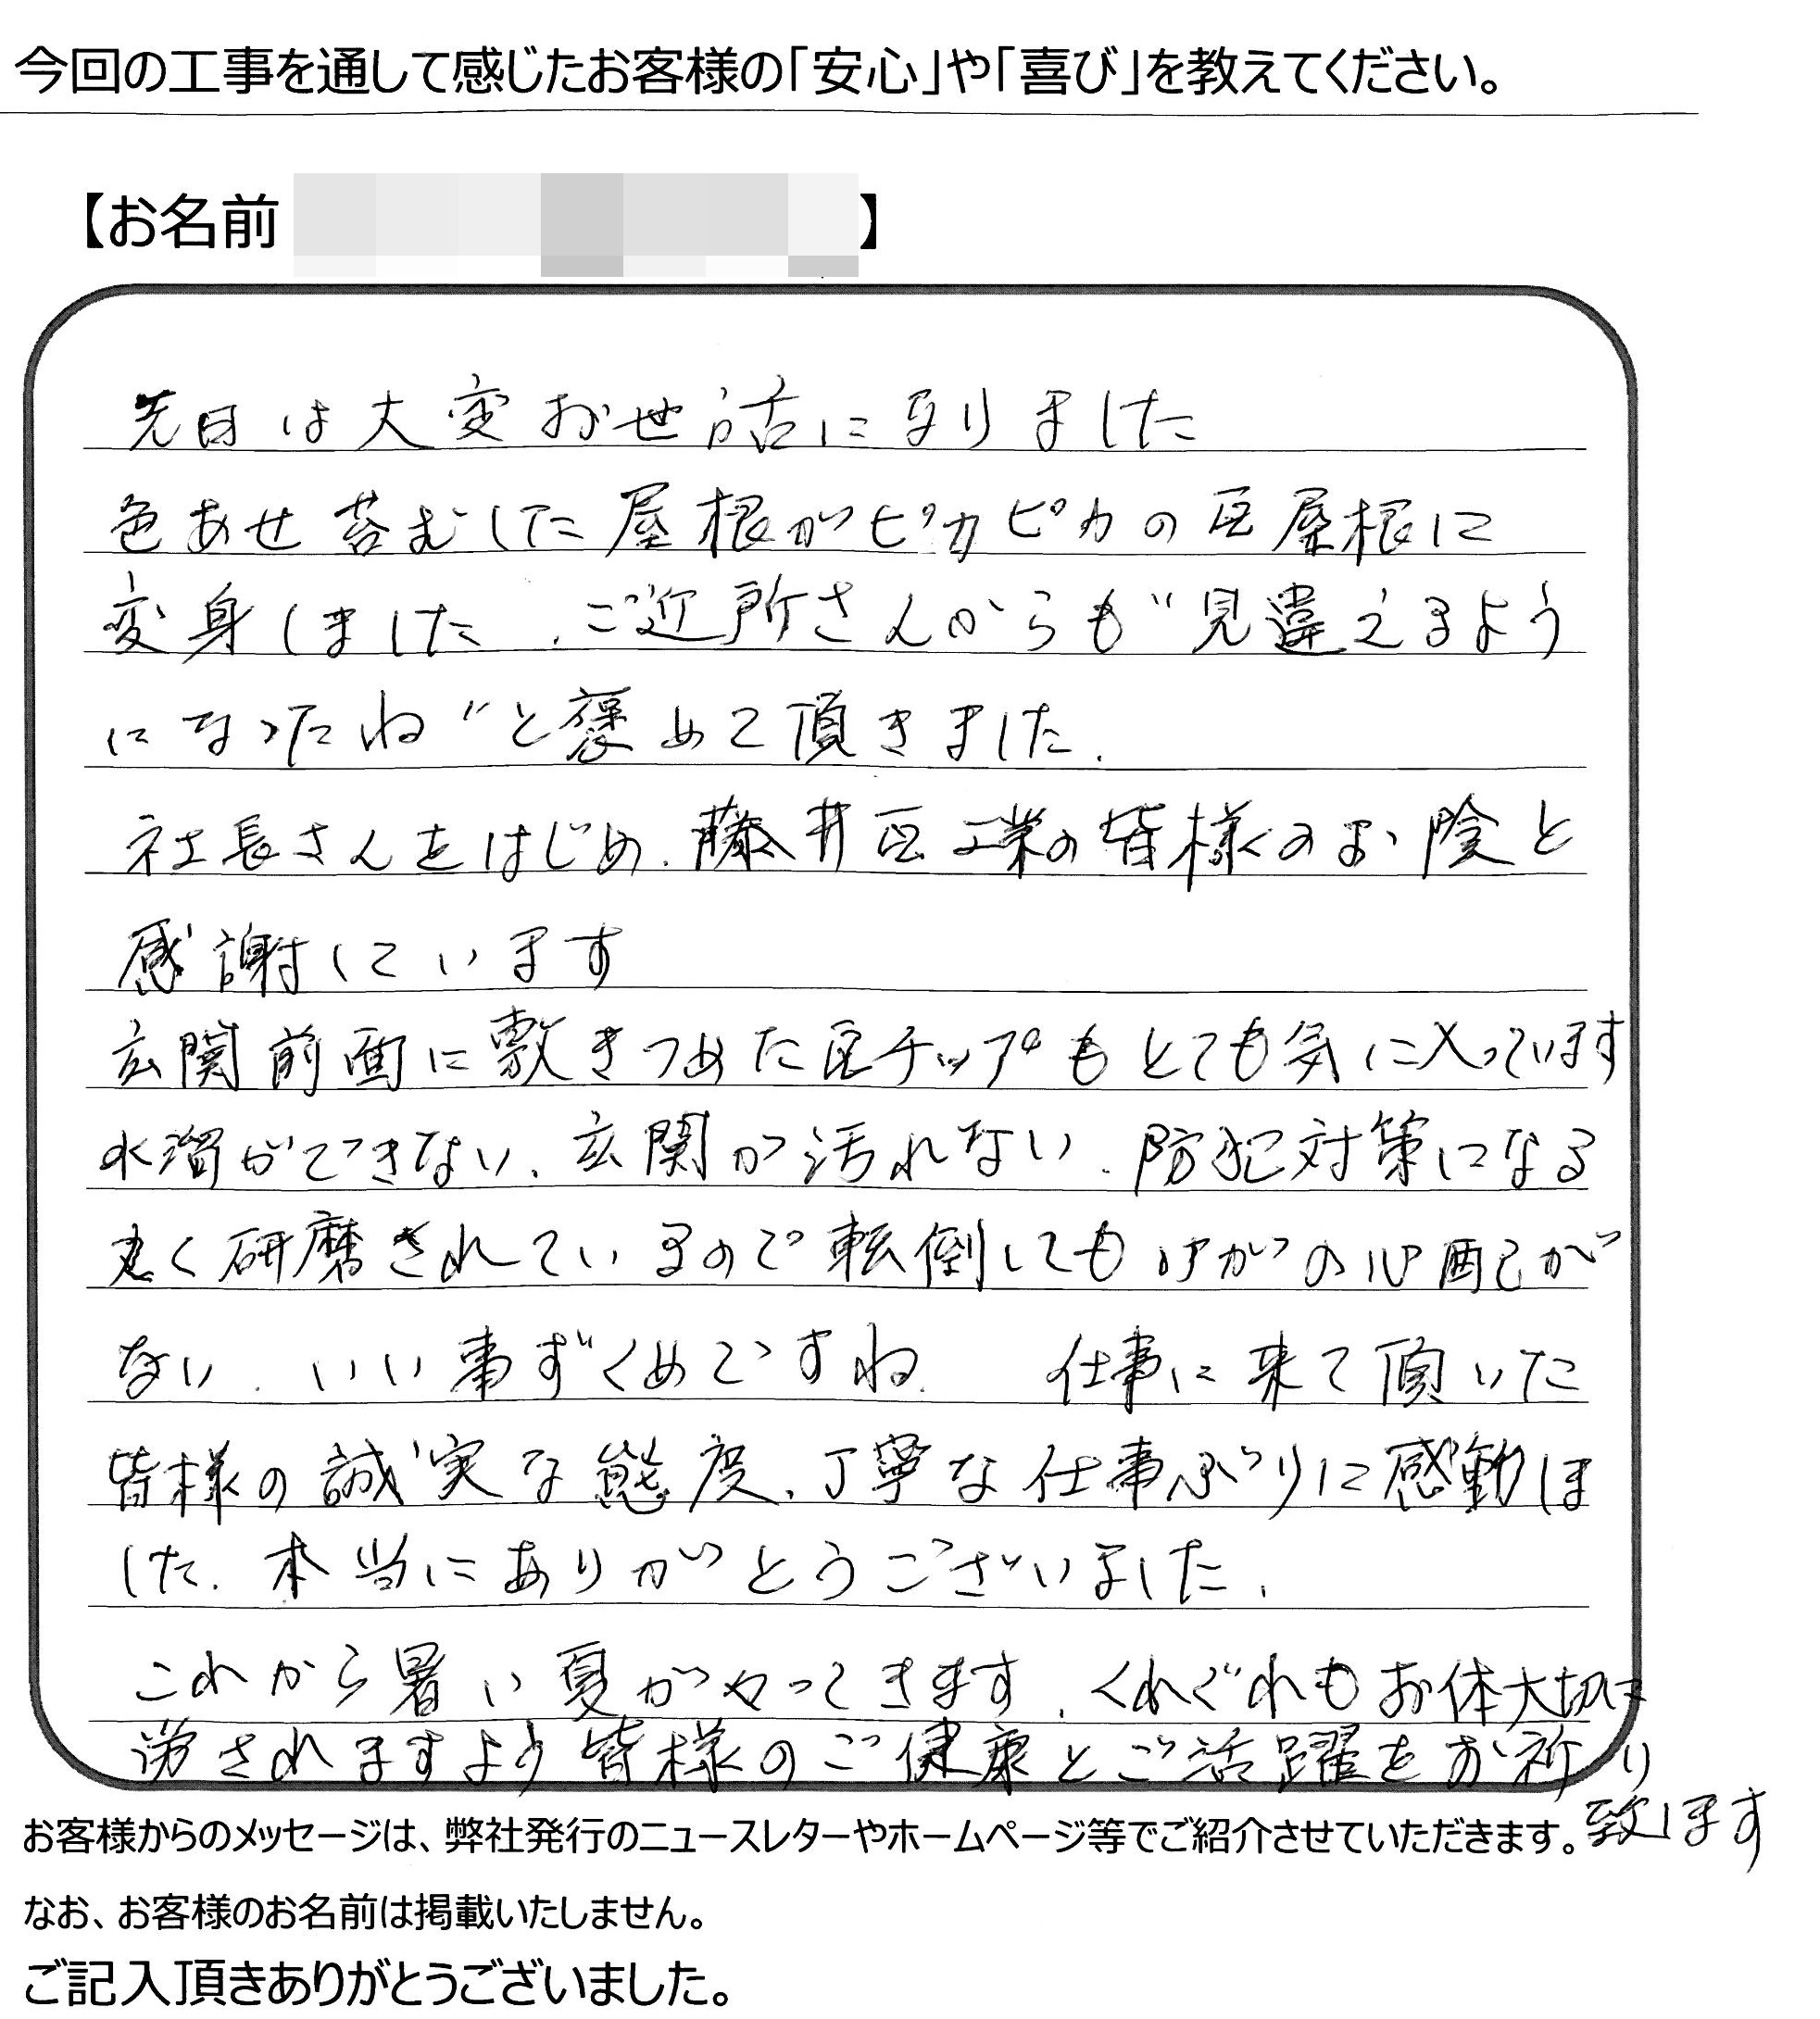 今回の工事を通して感じたお客様の「安心」や「喜び」を教えてください。
【お名前 】
先日は大変お世話になりました
色あせ苔むした屋根がピカピカの瓦屋根に
変身しました、ご近所さんからも〝見違えるよう
になったね〟と褒めて頂きました.
社長さんをはじめ、藤井瓦工業の皆様のお陰と
感謝しています
玄関前面に敷きつめた瓦チップもとても気に入っています
水溜ができない、玄関が汚れない、防犯対策になる
丸く研磨されているので転倒してもけがの心配が
ない、いい事ずくめですね、 仕事に来て頂いた
皆様の誠実な態度、丁寧な仕事ぶりに感動しま
した、本当にありがとうございました、
これから暑い夏がやってきます、くれぐれもお体大切に
されますよう皆様のご健康とご活躍をお祈り
致します
お客様からのメッセージは、弊社発行のニュースレターやホームページ等でご紹介させていただきます。
なお、お客様のお名前は掲載いたしません。
ご記入頂きありがとうございました。